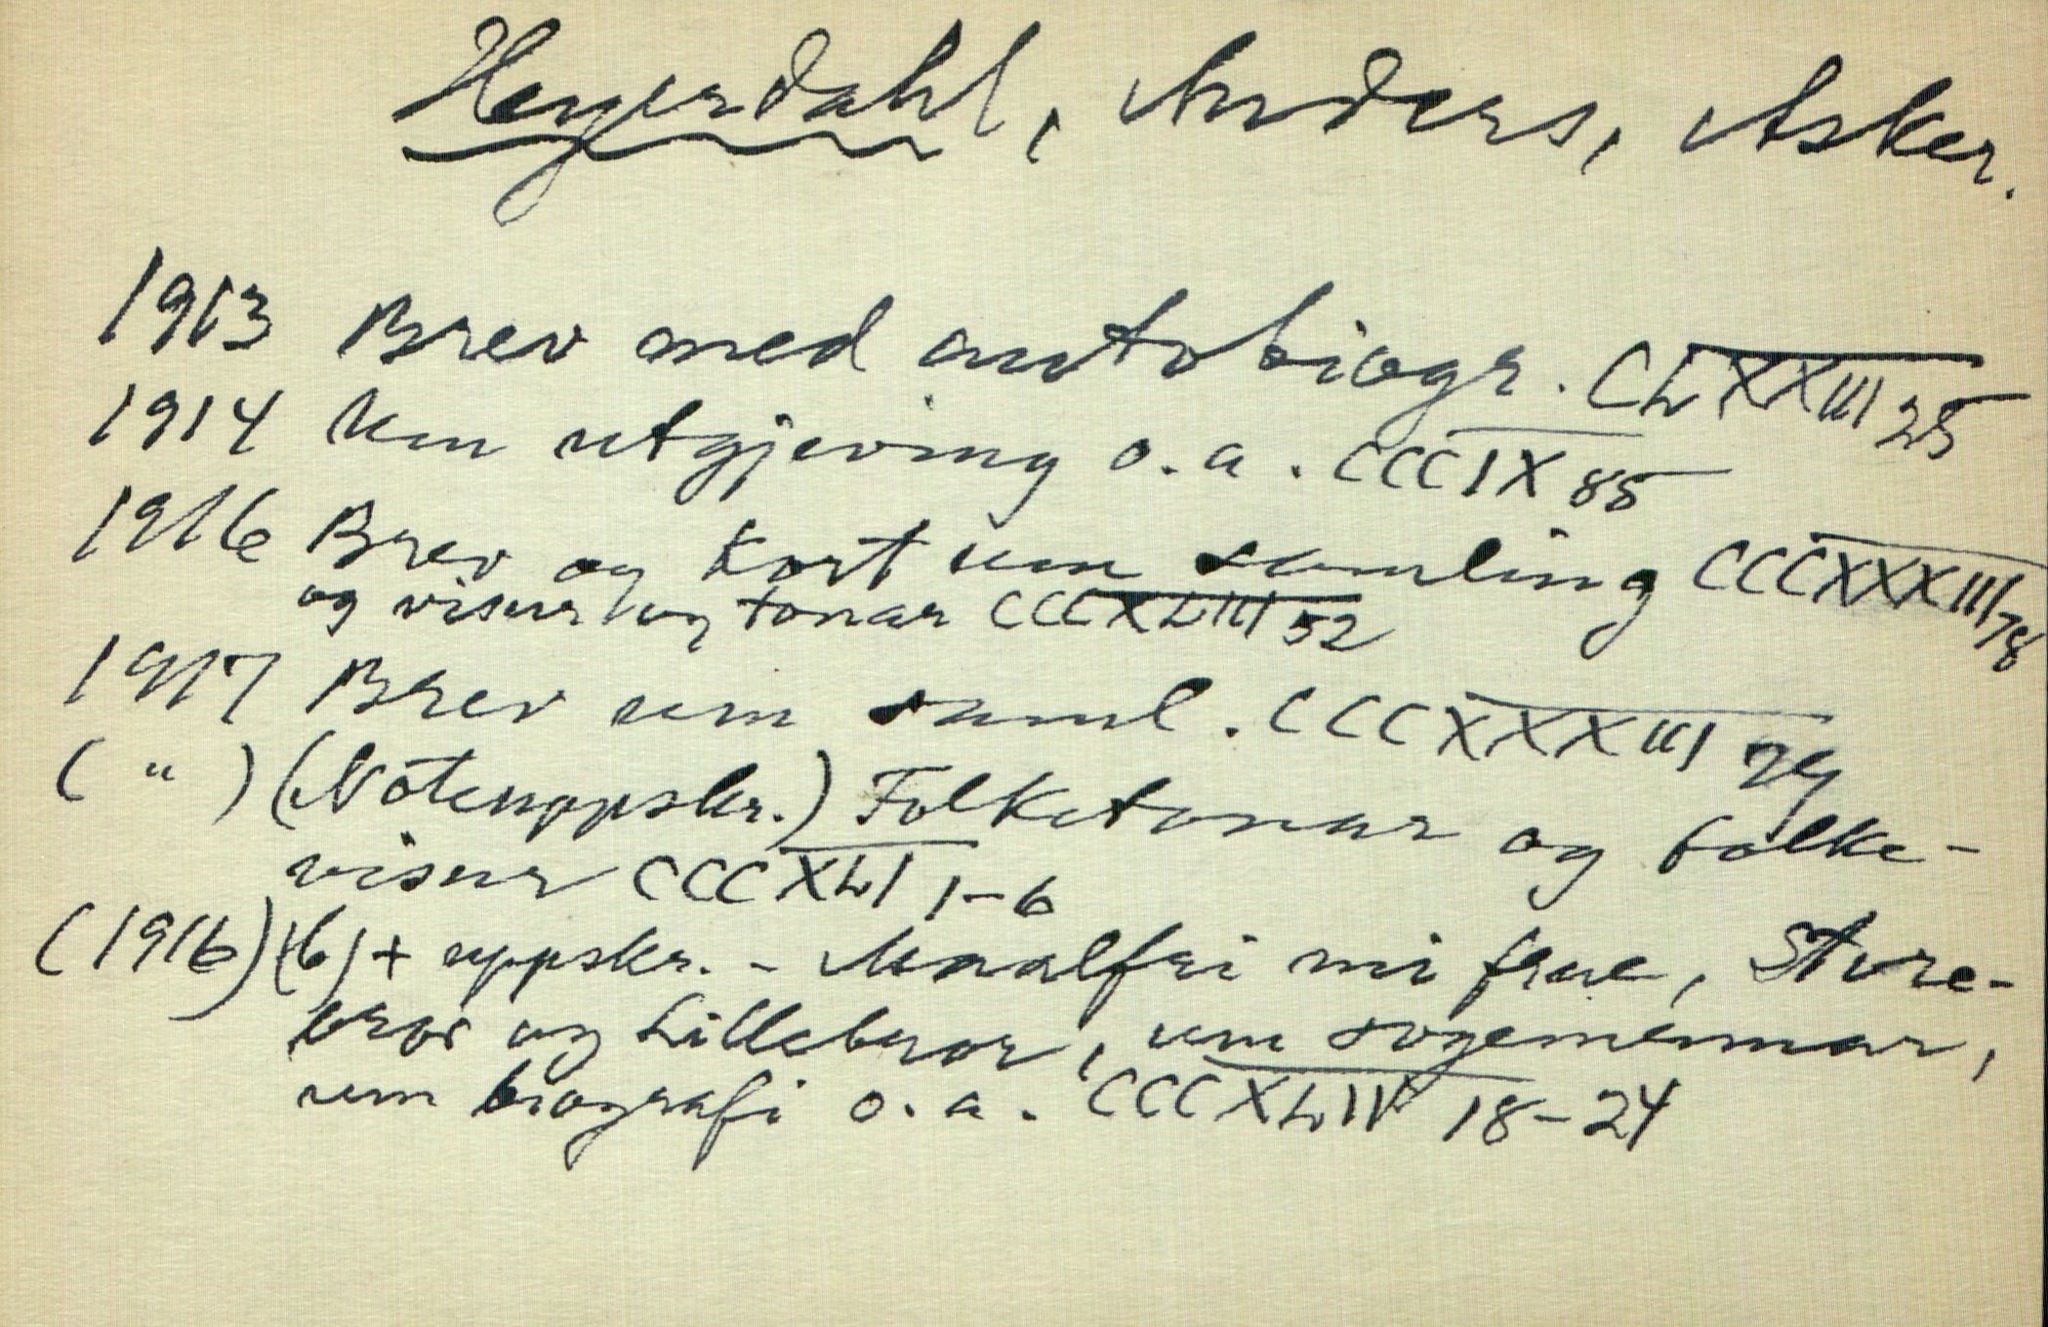 Heyerdahl, Anders, Asker.
1913 Brev med autobiogr. CLXXIII 25
1914 Um utgjeving o.a. CCCIX 85
1916 Brev og kort um samling CCCXXXIII 78
og visur og tonar CCCXLIII 52
1917 Brev um saml. CCCXXXIII 79
( " ) (Noteuppskr.) Folketonar og folke-
visur CCCXLI 1-6
(1916) (b) + uppskr. - Maalfri mi frue, Store-
bror og Lillebror, um sogemennar,
um biografi o.a. CCCXLIV 18-24